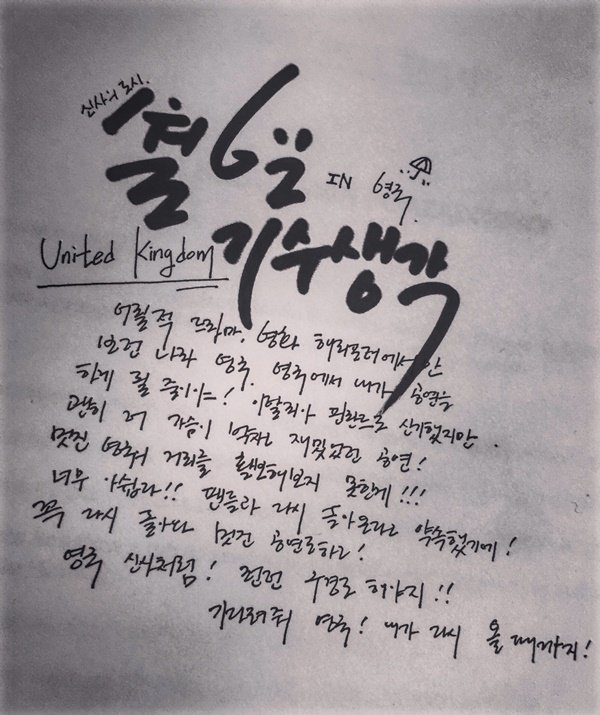 신사의 도시.
1월 6일 IN 영국.
United Kingdom 기수생각
어릴적 드라마, 영화 해리포터에서만
보던 나라 영국. 영국에서 내가 공연을
하게 될 줄이야! 이탈리아 핀란드도 신기했지만.
괜히 더 가슴이 벅차고 재밌었던 공연!
멋진 영국의 거리를 활보해보지 못한게!!!
너무 아쉽다!! 팬들과 다시 돌아온다고 약속했기에!
꼭 다시 돌아와 멋진 공연도하고!
영국 신사처럼! 런던 구경도 해야지!!
기다려줘 영국! 내가 다시 올때까지!